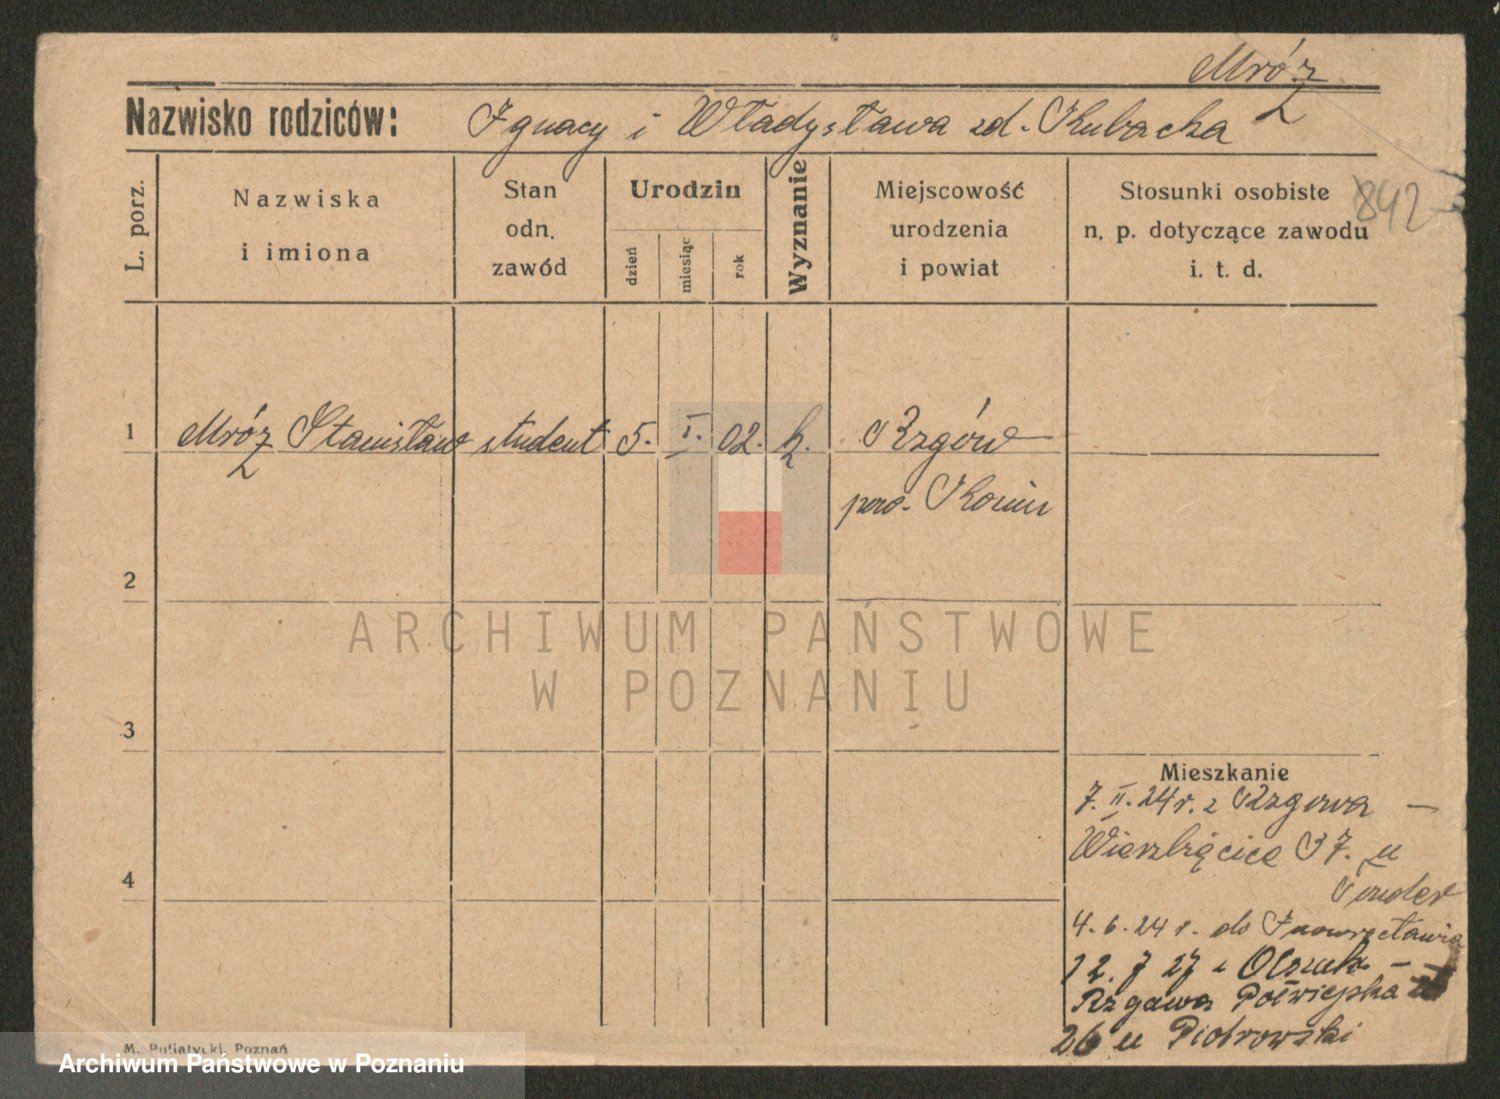 Mróz
Nazwisko rodziców: Ignacy i Władysława zd. Kubacka
L. porz.
Nazwiska
i imiona
Stan
odn.
zawód
Urodzin
dzień
miesiąc
rok
Wyznanie
Miejscowość
urodzenia
i powiat
Stosunki osobiste
n. p. dotyczące zawodu
i. t. d.
842
1 Mróz Stanisław student 5. I. 02. k. Rzgów
pow. Konin
2
3
4
Mieszkanie
7. II. 24 r. z Rzgowa —
Wierzbięcice 37. u
4. 6. 24 r. do Inowrocławia
12. 7 27 z
Rzgowa Półwiejska
26 u Piotrowski
M. Putiatycki, Poznań
ARCHIWUM PAŃSTWOWE
W POZNANIU
Archiwum Państwowe w Poznaniu